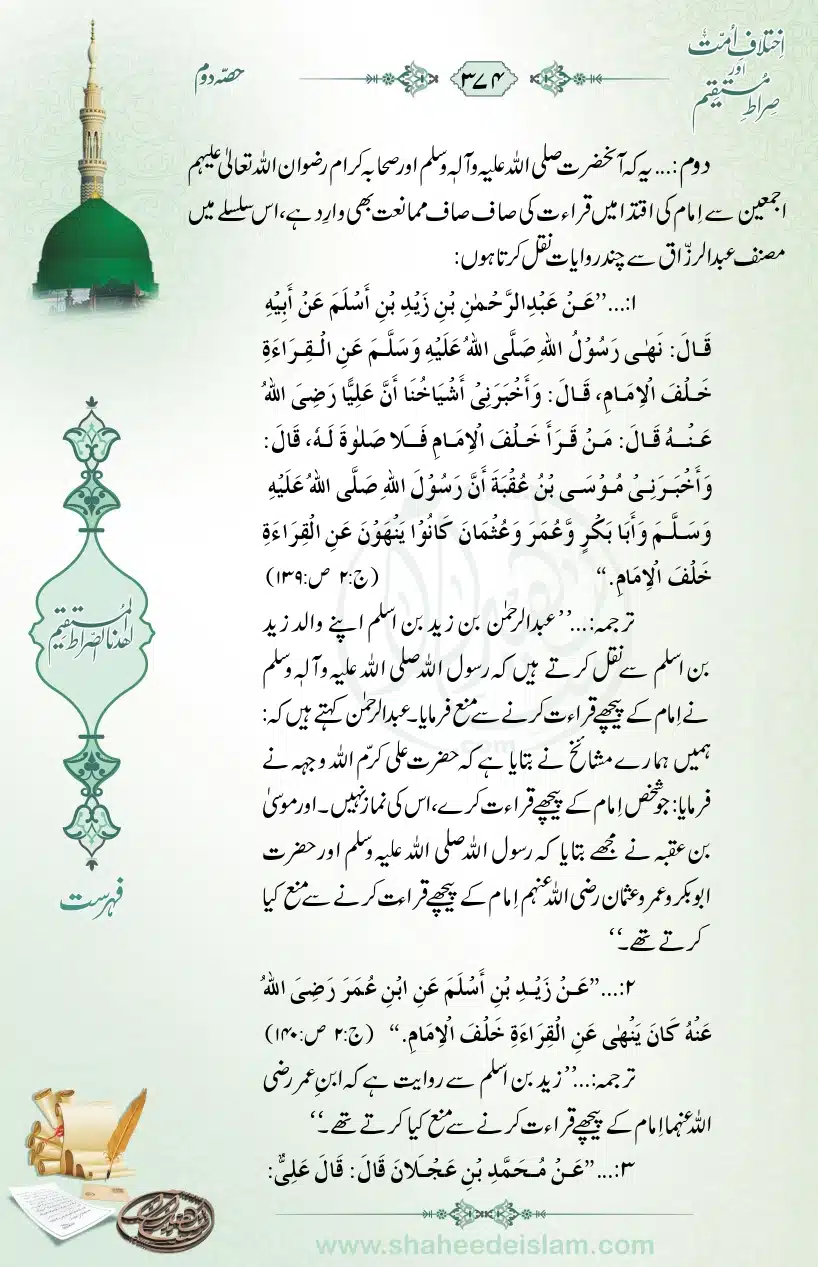 اِختلافِ اُمّت
اور
صِراطِ مُستقیم
۳۷۴
حصّہ دوم
دوم:... یہ کہ آنحضرت صلی اللہ علیہ وآلہٖ وسلم اور صحابہ کرام رضوان اللہ تعالیٰ علیہم
اجمعین سے اِمام کی اقتدا میں قراءت کی صاف صاف ممانعت بھی وارِد ہے، اس سلسلے میں
مصنف عبدالرزّاق سے چند روایات نقل کرتا ہوں:
۱:...”عَنْ عَبْدِالرَّحْمٰنِ بْنِ زَيْدِ بْنِ أَسْلَمَ عَنْ أَبِيْهِ
قَالَ: نَهٰى رَسُوْلُ اللهِ صَلَّى اللهُ عَلَيْهِ وَسَلَّمَ عَنِ الْقِرَاءَةِ
خَلْفَ الْإِمَامِ، قَالَ: وَأَخْبَرَنِىْ أَشْيَاخُنَا أَنَّ عَلِيًّا رَضِىَ اللهُ
عَنْهُ قَالَ: مَنْ قَرَأَ خَلْفَ الْإِمَامِ فَلَا صَلٰوةَ لَهٗ، قَالَ:
وَأَخْبَرَنِىْ مُوْسَى بْنُ عُقْبَةَ أَنَّ رَسُوْلَ اللهِ صَلَّى اللهُ عَلَيْهِ
وَسَلَّمَ وَأَبَا بَكْرٍ وَّعُمَرَ وَعُثْمَانَ كَانُوْا يَنْهَوْنَ عَنِ الْقِرَاءَةِ
خَلْفَ الْإِمَامِ.“ (ج:۲ ص:۱۳۹)
ترجمہ:...”عبدالرحمٰن بن زید بن اسلم اپنے والد زید
بن اسلم سے نقل کرتے ہیں کہ رسول اللہ صلی اللہ علیہ وآلہٖ وسلم
نے اِمام کے پیچھے قراءت کرنے سے منع فرمایا۔ عبدالرحمٰن کہتے ہیں کہ:
ہمیں ہمارے مشائخ نے بتایا ہے کہ حضرت علی کرّم اللہ وجہہ نے
فرمایا: جو شخص اِمام کے پیچھے قراءت کرے، اس کی نماز نہیں۔ اور موسیٰ
بن عقبہ نے مجھے بتایا کہ رسول اللہ صلی اللہ علیہ وسلم اور حضرت
ابوبکر و عمر و عثمان رضی اللہ عنہم اِمام کے پیچھے قراءت کرنے سے منع کیا
کرتے تھے۔“
۲:...”عَنْ زَيْدِ بْنِ أَسْلَمَ عَنِ ابْنِ عُمَرَ رَضِىَ اللهُ
عَنْهُ كَانَ يَنْهٰى عَنِ الْقِرَاءَةِ خَلْفَ الْإِمَامِ.“ (ج:۲ ص:۱۴۰)
ترجمہ:...”زید بن اسلم سے روایت ہے کہ ابنِ عمر رضی
اللہ عنہما اِمام کے پیچھے قراءت کرنے سے منع کیا کرتے تھے۔“
۳:...”عَنْ مُحَمَّدِ بْنِ عَجْلَانَ قَالَ: قَالَ عَلِىٌّ:
اهدنا الصراط المستقيم
فہرست
www.shaheedeislam.com